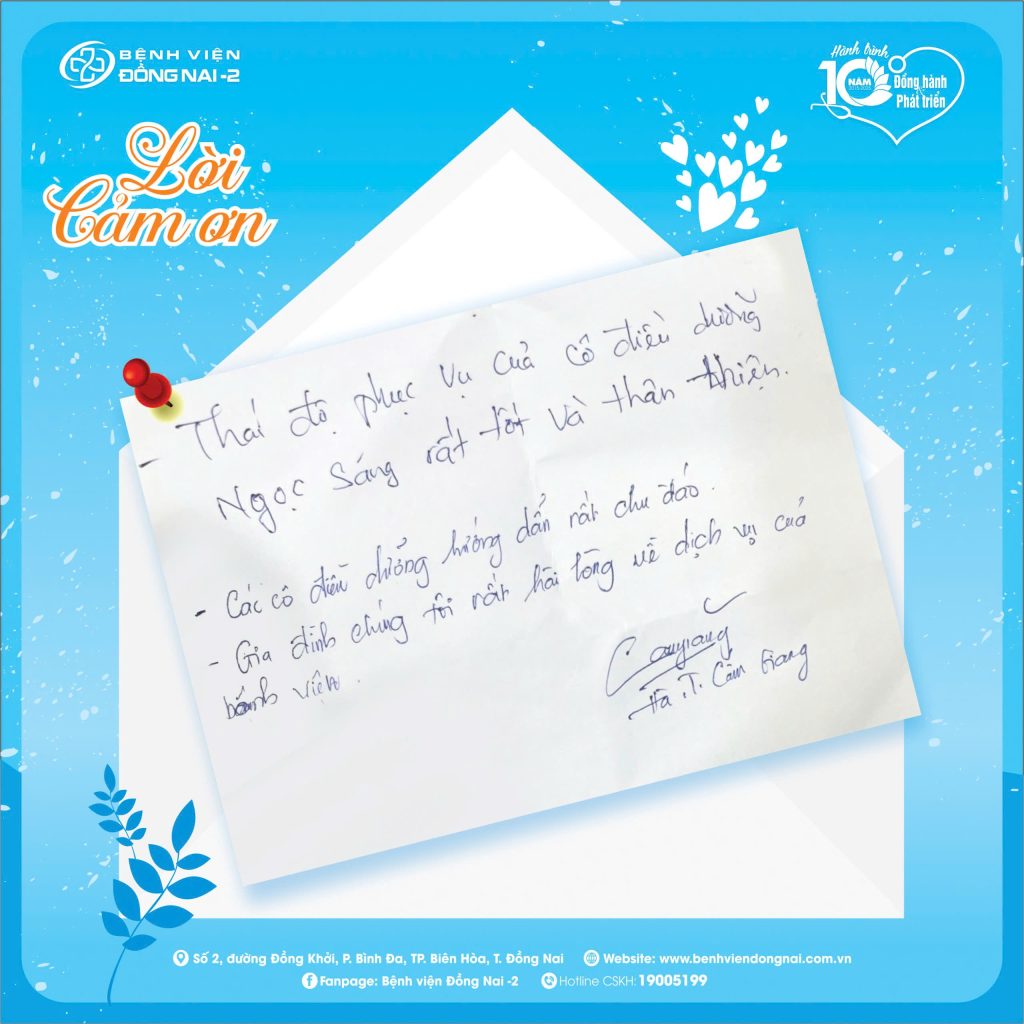 BỆNH VIỆN
ĐỒNG NAI -2
Hành trình
10 NĂM
Đồng hành
Phát triển
Lời
Cảm ơn
- Thái độ phục vụ của cô điều dưỡng
Ngọc Sáng rất tốt và thân thiện.
- Các cô điều dưỡng hướng dẩn rất chu đáo.
- Gia đình chúng tôi rất hài lòng về dịch vụ của
bệnh viện.
Hà.T. Cẩm Giang
Số 2, đường Đồng Khởi, P. Bình Đa, TP. Biên Hòa, T. Đồng Nai Website: www.benhviendongnai.com.vn
Fanpage: Bệnh viện Đồng Nai -2 Hotline CSKH: 19005199